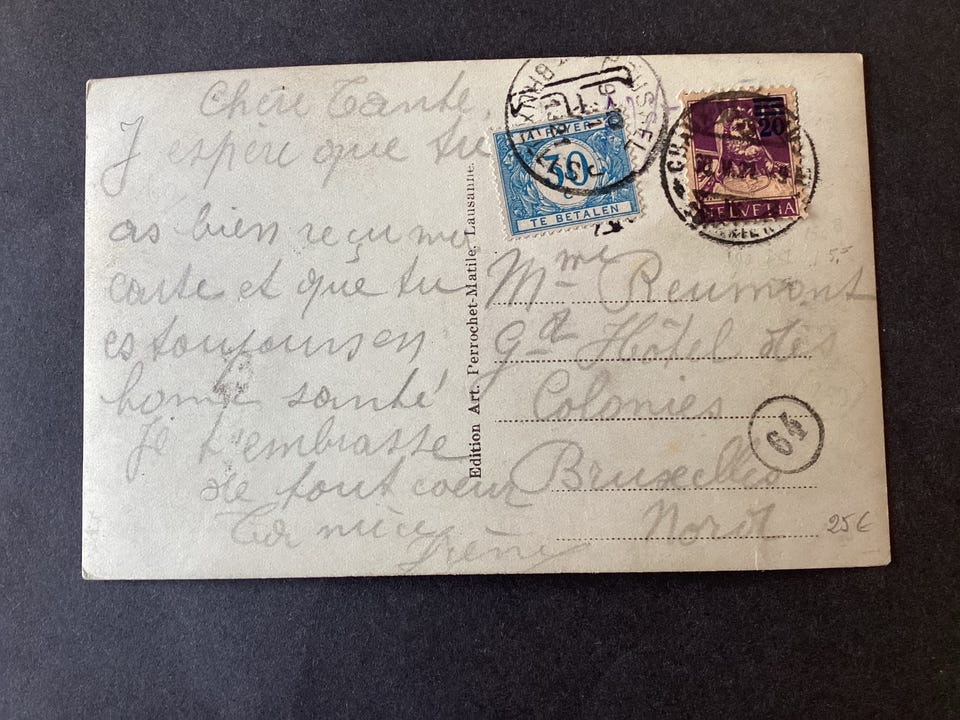 Chère Tante,
J'espère que tu
as bien reçu ma
carte et que tu
es toujours en
bonne santé
Je t'embrasse
de tout coeur
Ta nièce
Irène
Edition Art. Perrochet-Matile, Lausanne.
A PAYER
30
c
TE BETALEN
T
20
HELVETIA
Mme Reumont
Gd Hôtel des
Colonies
Bruxelles
Nord
64
5,-
25€